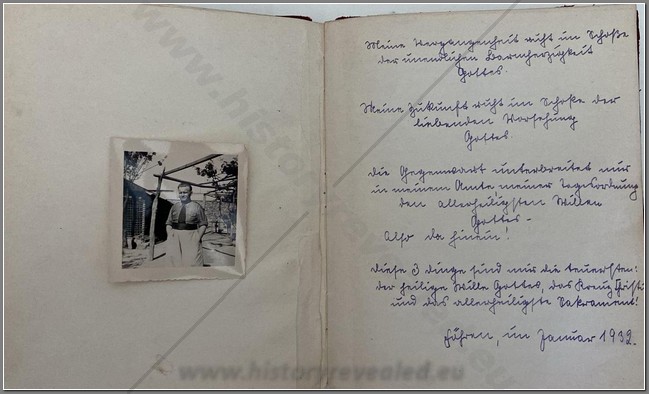 Meine Vergangenheit ruht im Schoße
der unendlichen Barmherzigkeit
Gottes.
Meine Zukunft ruht im Schoße der
liebenden Vorsehung
Gottes
Die Gegenwart unterbreitet mir
in meinem Amte meiner Tagesordnung
den allerheiligsten Willen
Gottes –
Also da hinein!
Diese 3 Dinge sind mir die teuersten:
der heilige Wille Gottes, das Kreuz Christi
und das allerheiligste Sakrament!
im Januar 1932.
www.historyrevealed.eu